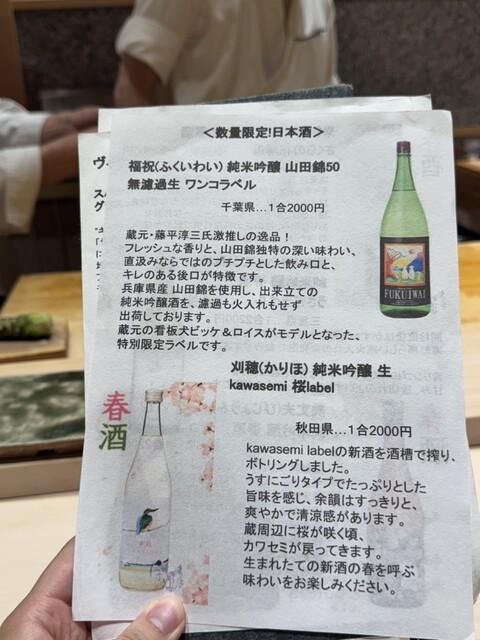 <数量限定!日本酒>
福祝(ふくいわい) 純米吟醸 山田錦50
無濾過生 ワンコラベル
千葉県…1合2000円
蔵元・藤平淳三氏激推しの逸品!
フレッシュな香りと、山田錦独特の深い味わい、
直汲みならではのプチプチとした飲み口と、
キレのある後口が特徴です。
兵庫県産 山田錦を使用し、出来立ての
純米吟醸酒を、濾過も火入れもせず
出荷しております。
蔵元の看板犬ビッケ&ロイスがモデルとなった、
特別限定ラベルです。
FUKUIWAI
刈穂(かりほ) 純米吟醸 生
kawasemi 桜label
秋田県…1合2000円
春酒
kawasemi labelの新酒を酒槽で搾り、
ボトリングしました。
うすにごりタイプでたっぷりとした
旨味を感じ、余韻はすっきりと、
爽やかで清涼感があります。
蔵周辺に桜が咲く頃、
カワセミが戻ってきます。
生まれたての新酒の春を呼ぶ
味わいをお楽しみください。